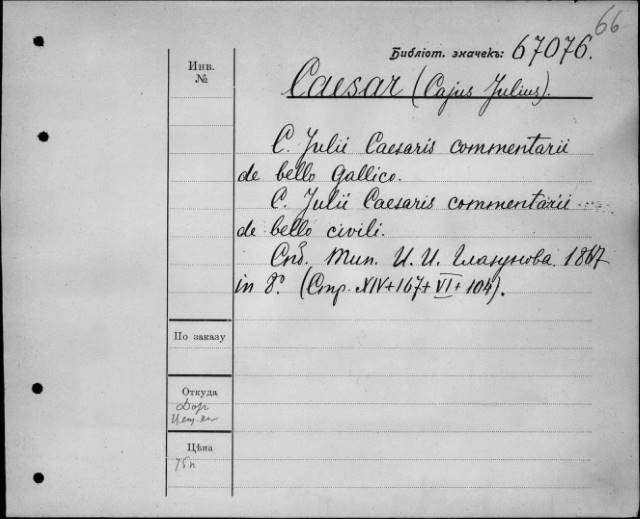 66
Библіот. значекъ: 67076.
Инв.
№
Caesar (Cajus Julius).
C. Julii Caesaris commentarii
de bello Gallico.
C. Julii Caesaris commentarii
de bello civili.
Спб. Тип. И. И. Глазунова. 1867
in 8°. (Стр. XIV+167+VI+104).
По заказу
Откуда
Дар
Цѣна
75к